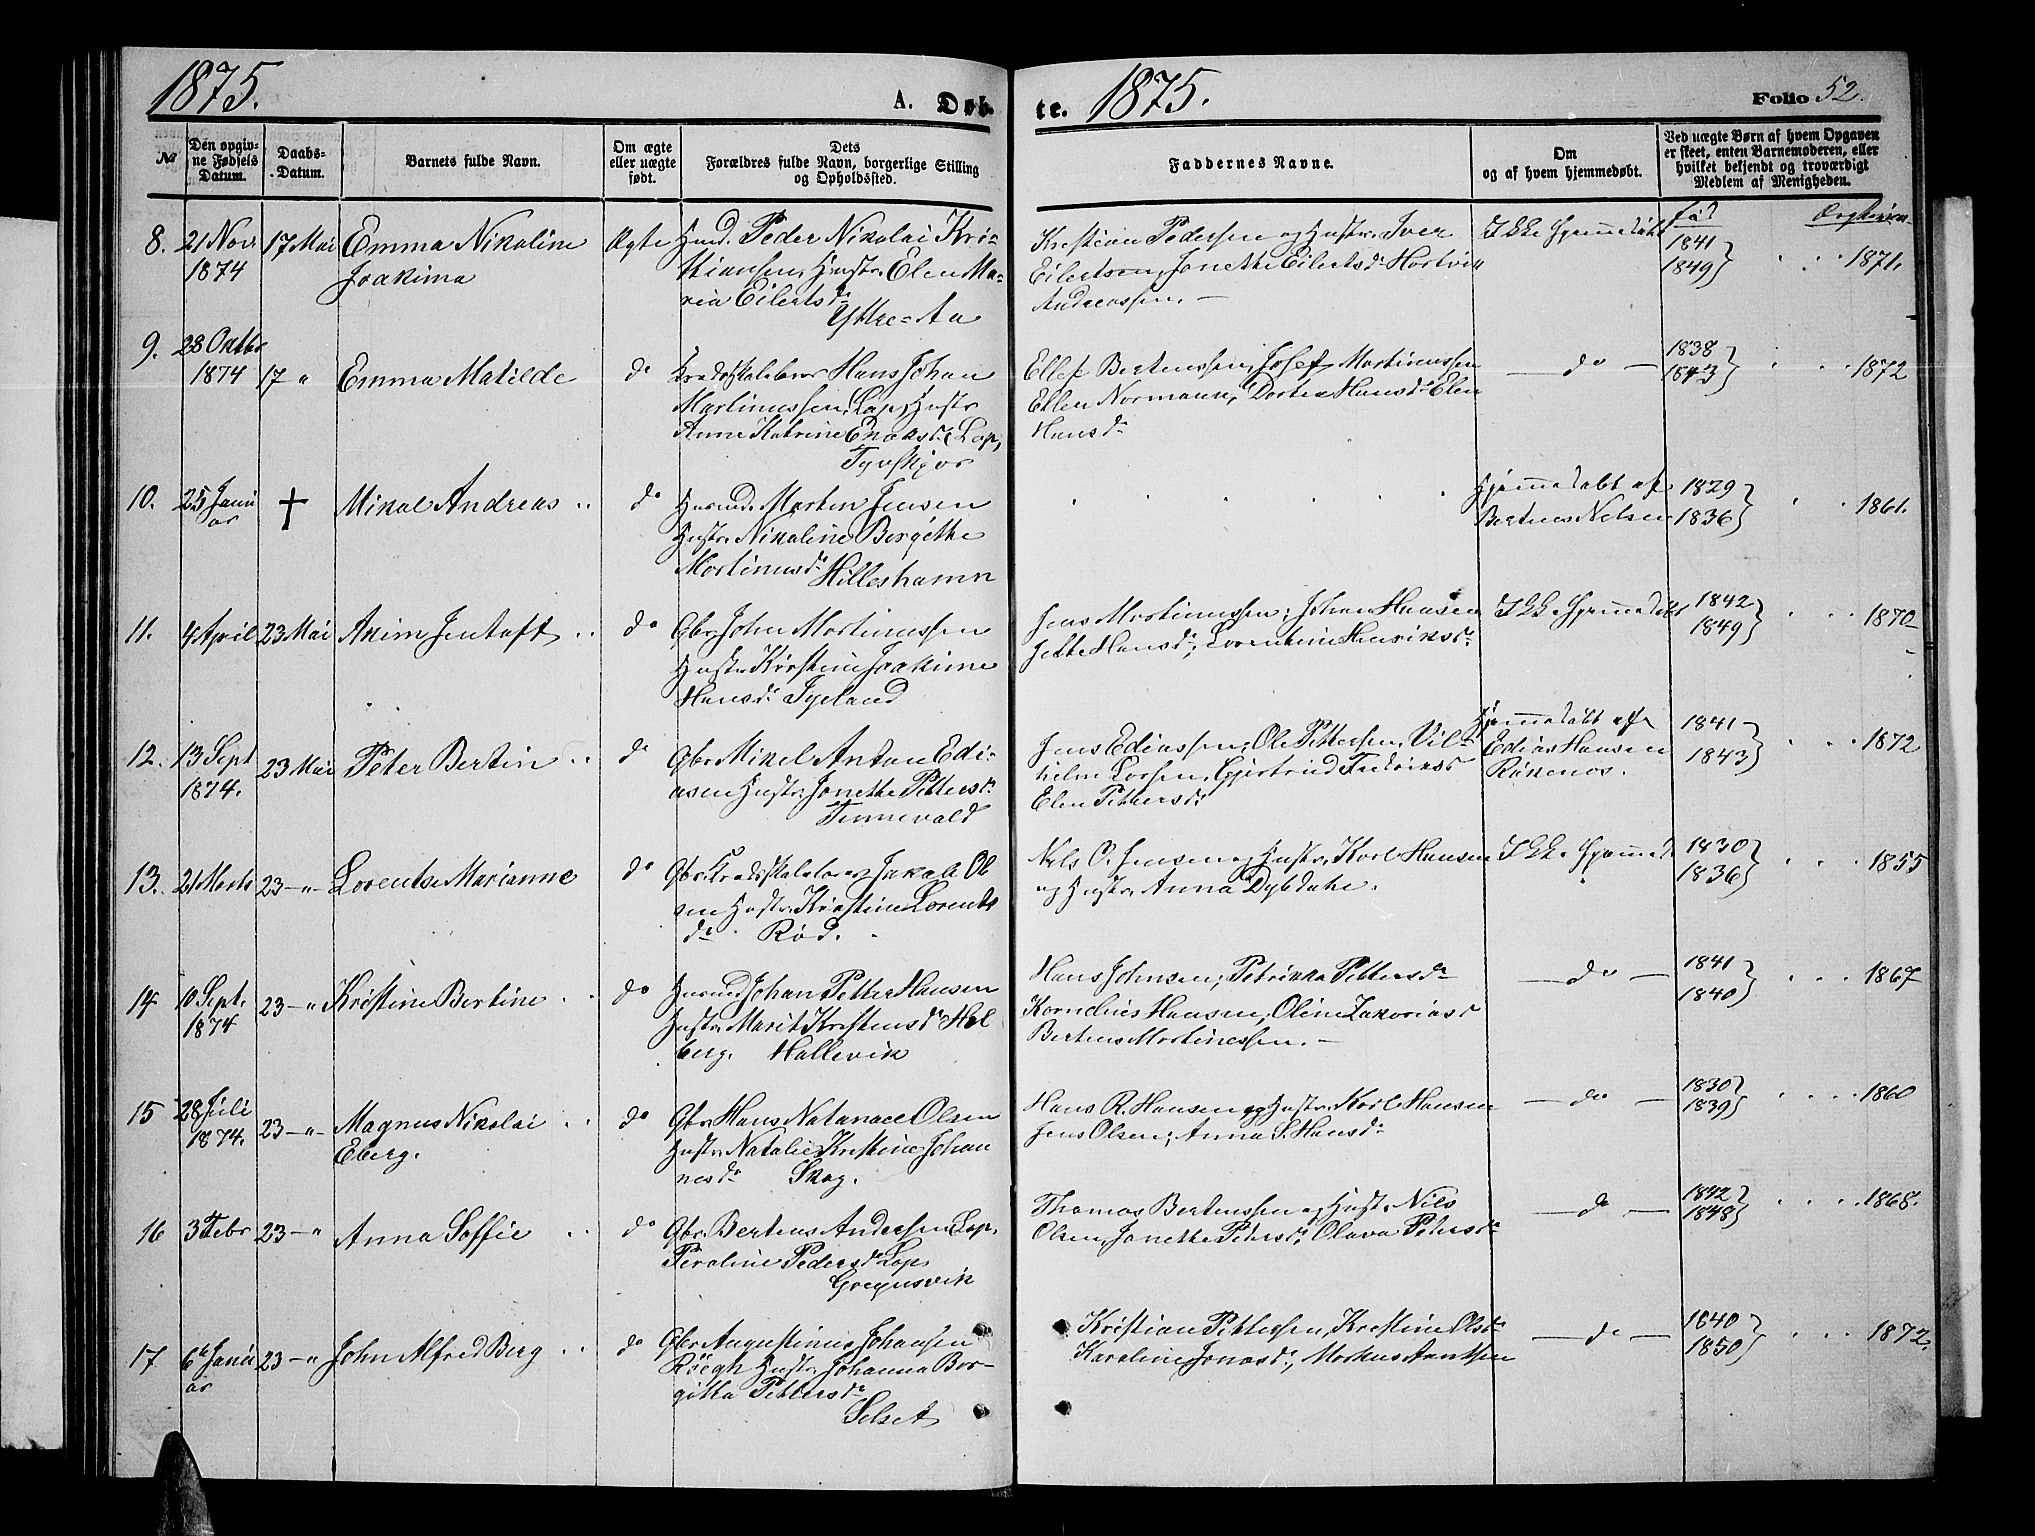 1875.
A. Døb-
te. 1875.
Folio 52.
№
Den opgiv-
ne Fødsels
Datum.
Daabs-
Datum.
Barnets fulde Navn.
Om ægte
eller uægte
født.
Dets
Forældres fulde Navn, borgerlige Stilling
og Opholdssted.
Faddernes Navne.
Om
og af hvem hjemmedøbt.
Ved uægte Børn af hvem Opgaven
er skeet, enten Barnemoderen, eller
hvilket bekjendt og troværdigt
Medlem af Menigheden.
8. 21 Nov 17 Mai Emma Nikoline Ægte Husmd. Peder Nikolai Kri-
1874 Joakima
stiansen, Hustr. Elen Ma-
ria Eilertsdr
Yttre-Aa
Kristian Pedersen og Hustr. Iver
Eilertsen, Janethe Eilertsdr Hartvik
Andreassen. —
Ikke hjemmedøbt
fød
1841
1849 } 1871.
9. 28 Oktbr
1874 17 " Emma Matilde do
Hans Johan
Martinussen, Lap, Hustr
Anne Katrine Enoksdr Lap,
Ellef Bertenssen, Josef Martinussen
Ellen Normann, Dortea Hansdr Elen
Hansdr
— do —
1838
1843 } 1872
10. 25 Janu
ar † Mikal Andreas do
Husmd. Morten Jensen
Hustr. Nikoline Bergithe
Martinusdr Hilleshamn
Hjemmedøbt af
Bertens Nelsen
1829
1836 } 1861.
11. 4 April 23 Mai Akim Jentoft do
Gbr John Martinussen
Hustr. Kirstine Joakime
Hansdr
Jens Martinussen, Johan Hansen
Jette Hansdr, Lorentine Henriksdr
Ikke hjemmedøbt
1842
1849 } 1870
12. 13 Sept 23 Mai Peter Bertin do
1874.
Gbr Mikel Anton Edi-
asen Hustr. Janethe Pettersdr
Tennevold
Jens Ediassen, Ole Pettersen, Vil-
helm Larsen, Gjertrud
Elen Pettersdr
Hjemmedøbt af
Edias Hansen
Rokenes.
1841
1843 } 1872
13. 21 Marts 23 — " Lorentse Marianne do
Gbr. Jakob Ol
sen Hustr. Kirstine Lorents
dr. Rød.
Nels O. Jensen og Hustr. Karl Hansen
og Hustr. Anna Dybdahl.
Ikke hjemmed.
1830
1836 } 1855
14 10 Sept. 23 — " Kristine Bertine do
1874
Husmd Johan Petter Hansen
Hustr. Marit Kristensdr Hol
berg. Hallevik
Hans Johnsen, Petrikka Pettersdr
Kornelius Hansen, Oline Zakariasdr
Bertens Martinessen. —
— do —
1841
1840 } 1867
15 28 Juli
1874. 23 — " Magnus Nikolai do
Eberg.
Gbr. Hans Natanael Olsen
Hustr. Natalie Kristine Johan
nesdr Skog.
Hans R. Hansen og Hustr. Karl Hansen
Jens Olsen, Anna S. Hansdr
— do —
1830
1839 } 1860
16 3 Febr 23 — " Anna Soffie do
Gbr. Bertens Andersen Lap,
Peroline Pedersdr Lap
Gregusvik
Thomas Bertenssen og Hustr. Nils
Olsen, Janethe Petersdr, Olava Petersdr
— do —
1842
1848 } 1868.
17 6te Janu
ar 23 — " John Alfred Berg do
Gbr Augustinus Johansen
Hustr. Johanna Ber-
gitta Pettersdr
Selset
Kristian Pettersen, Kristine Olsdr
Karoline Jonasdr, Markus Arntsen
— do —
1840
1850 } 1872.